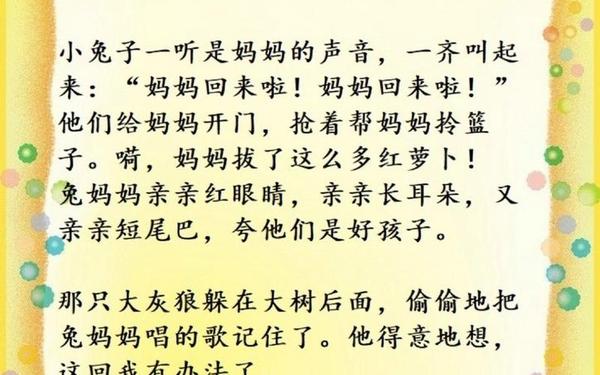 小兔子一听是妈妈的声音，一齐叫起
来：“妈妈回来啦！妈妈回来啦！”
他们给妈妈开门，抢着帮妈妈拎篮
子。嗬，妈妈拔了这么多红萝卜！
兔妈妈亲亲红眼睛，亲亲长耳朵，又
亲亲短尾巴，夸他们是好孩子。
那只大灰狼躲在大树后面，偷偷地把
兔妈妈唱的歌记住了。他得意地想，
这回我有办法了